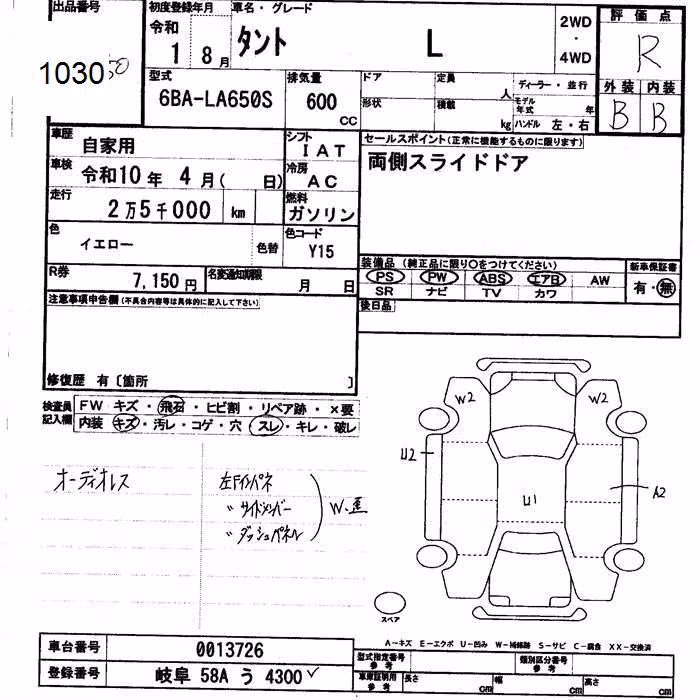 出品番号
103050
初度登録年月
令和
1 8月
車名・グレード
タント L
2WD
・
4WD
評価点
R
外装 内装
B B
型式
6BA-LA650S
排気量
600
CC
ドア
形状
定員
人
積載
kg
ディーラー・並行
モデル
年式
年
ハンドル 左・右
車歴
自家用
シフト
IAT
車検
令和10年 4月( 日)
冷房
AC
走行
2万5千000 km
燃料
ガソリン
色
イエロー
色替
色コード
Y15
R券
7,150円
名変通知期限
月 日
セールスポイント(正常に機能するものに限ります)
両側スライドドア
装備品 (純正品に限り○をつけてください)
PS PW ABS エアB AW
SR ナビ TV カワ
新車保証書
有・無
後日品
注意事項申告欄(不具合内容等は具体的に記入して下さい)
修復歴 有〔箇所 〕
検査員
記入欄
FW キズ・飛石・ヒビ割・リペア跡・×要
内装 キズ・汚レ・コゲ・穴 スレ・キレ・破レ
オーディオレス
左Fインパネ
〃サイドメンバー
〃ダッシュパネル
W・歪
W2
W2
U2
U1
A2
スペア
A-キズ E-エクボ U-凹み W-補修跡 S-サビ C-腐食 XX-交換済
車台番号 0013726
登録番号 岐阜 58A う 4300
型式指定番号
参考
類別区分番号
参考
車庫証明用
参考
長さ
cm
幅
cm
高さ
cm